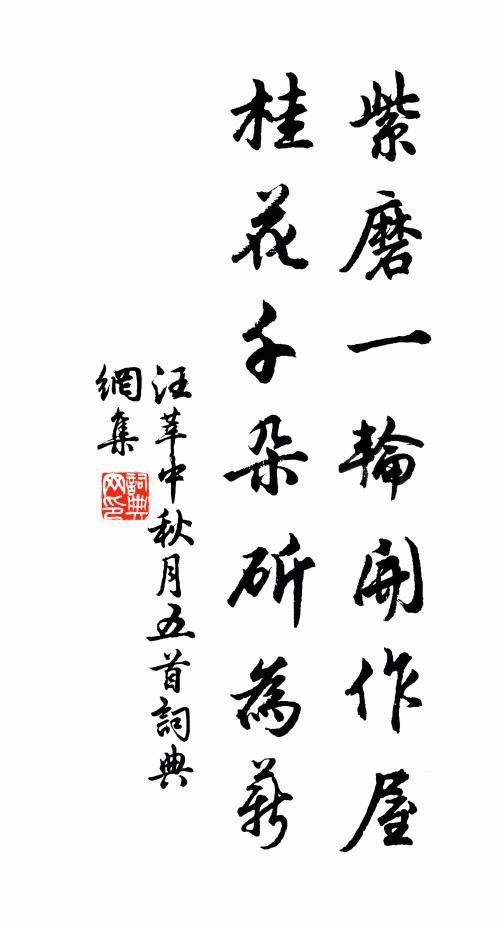 紫磨一輪開作屋
桂花千朵斫為薪
汪莘中秋月五首詞典
網集
詞典
网印